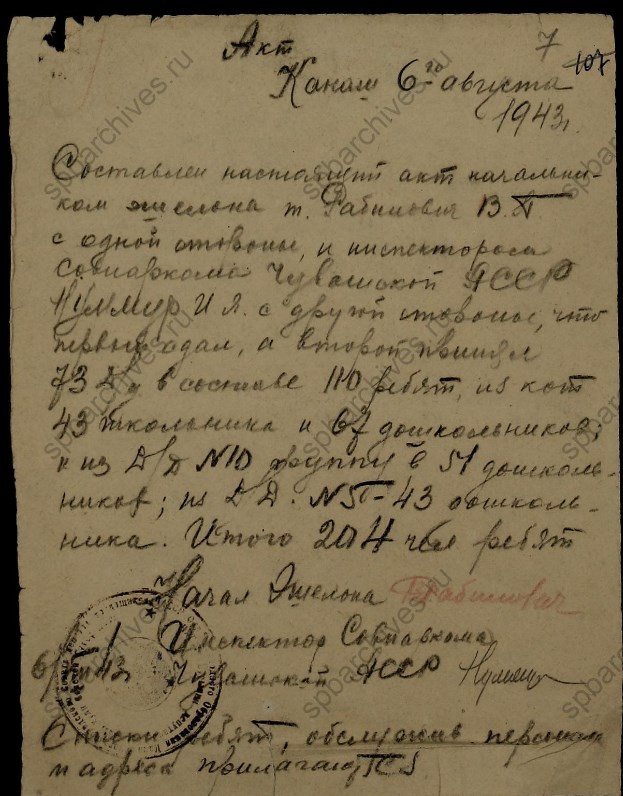 Акт
7
107
Канаш 6го августа
1943г.
Составлен настоящий акт начальни-
ком эшелона т. Рабинович В.
с одной стороны, и инспектором
Совнаркома Чувашской АССР
И Я. с другой стороны, что
первый сдал, а второй принял
73 Д/д в составе 110 ребят, из кот
43 школьника и 67 дошкольников;
и из Д/Д N10 группу в 51 дошколь-
ников; из Д Д. N5 - 43 дошколь-
ника. Итого 204 чел ребят
Начал Эшелона Рабинович
Инспектор Совнаркома
Чувашской АССР
6/ 43г
Списки ребят, обслужив персонала
и адреса прилагаются
spbarchives.ru